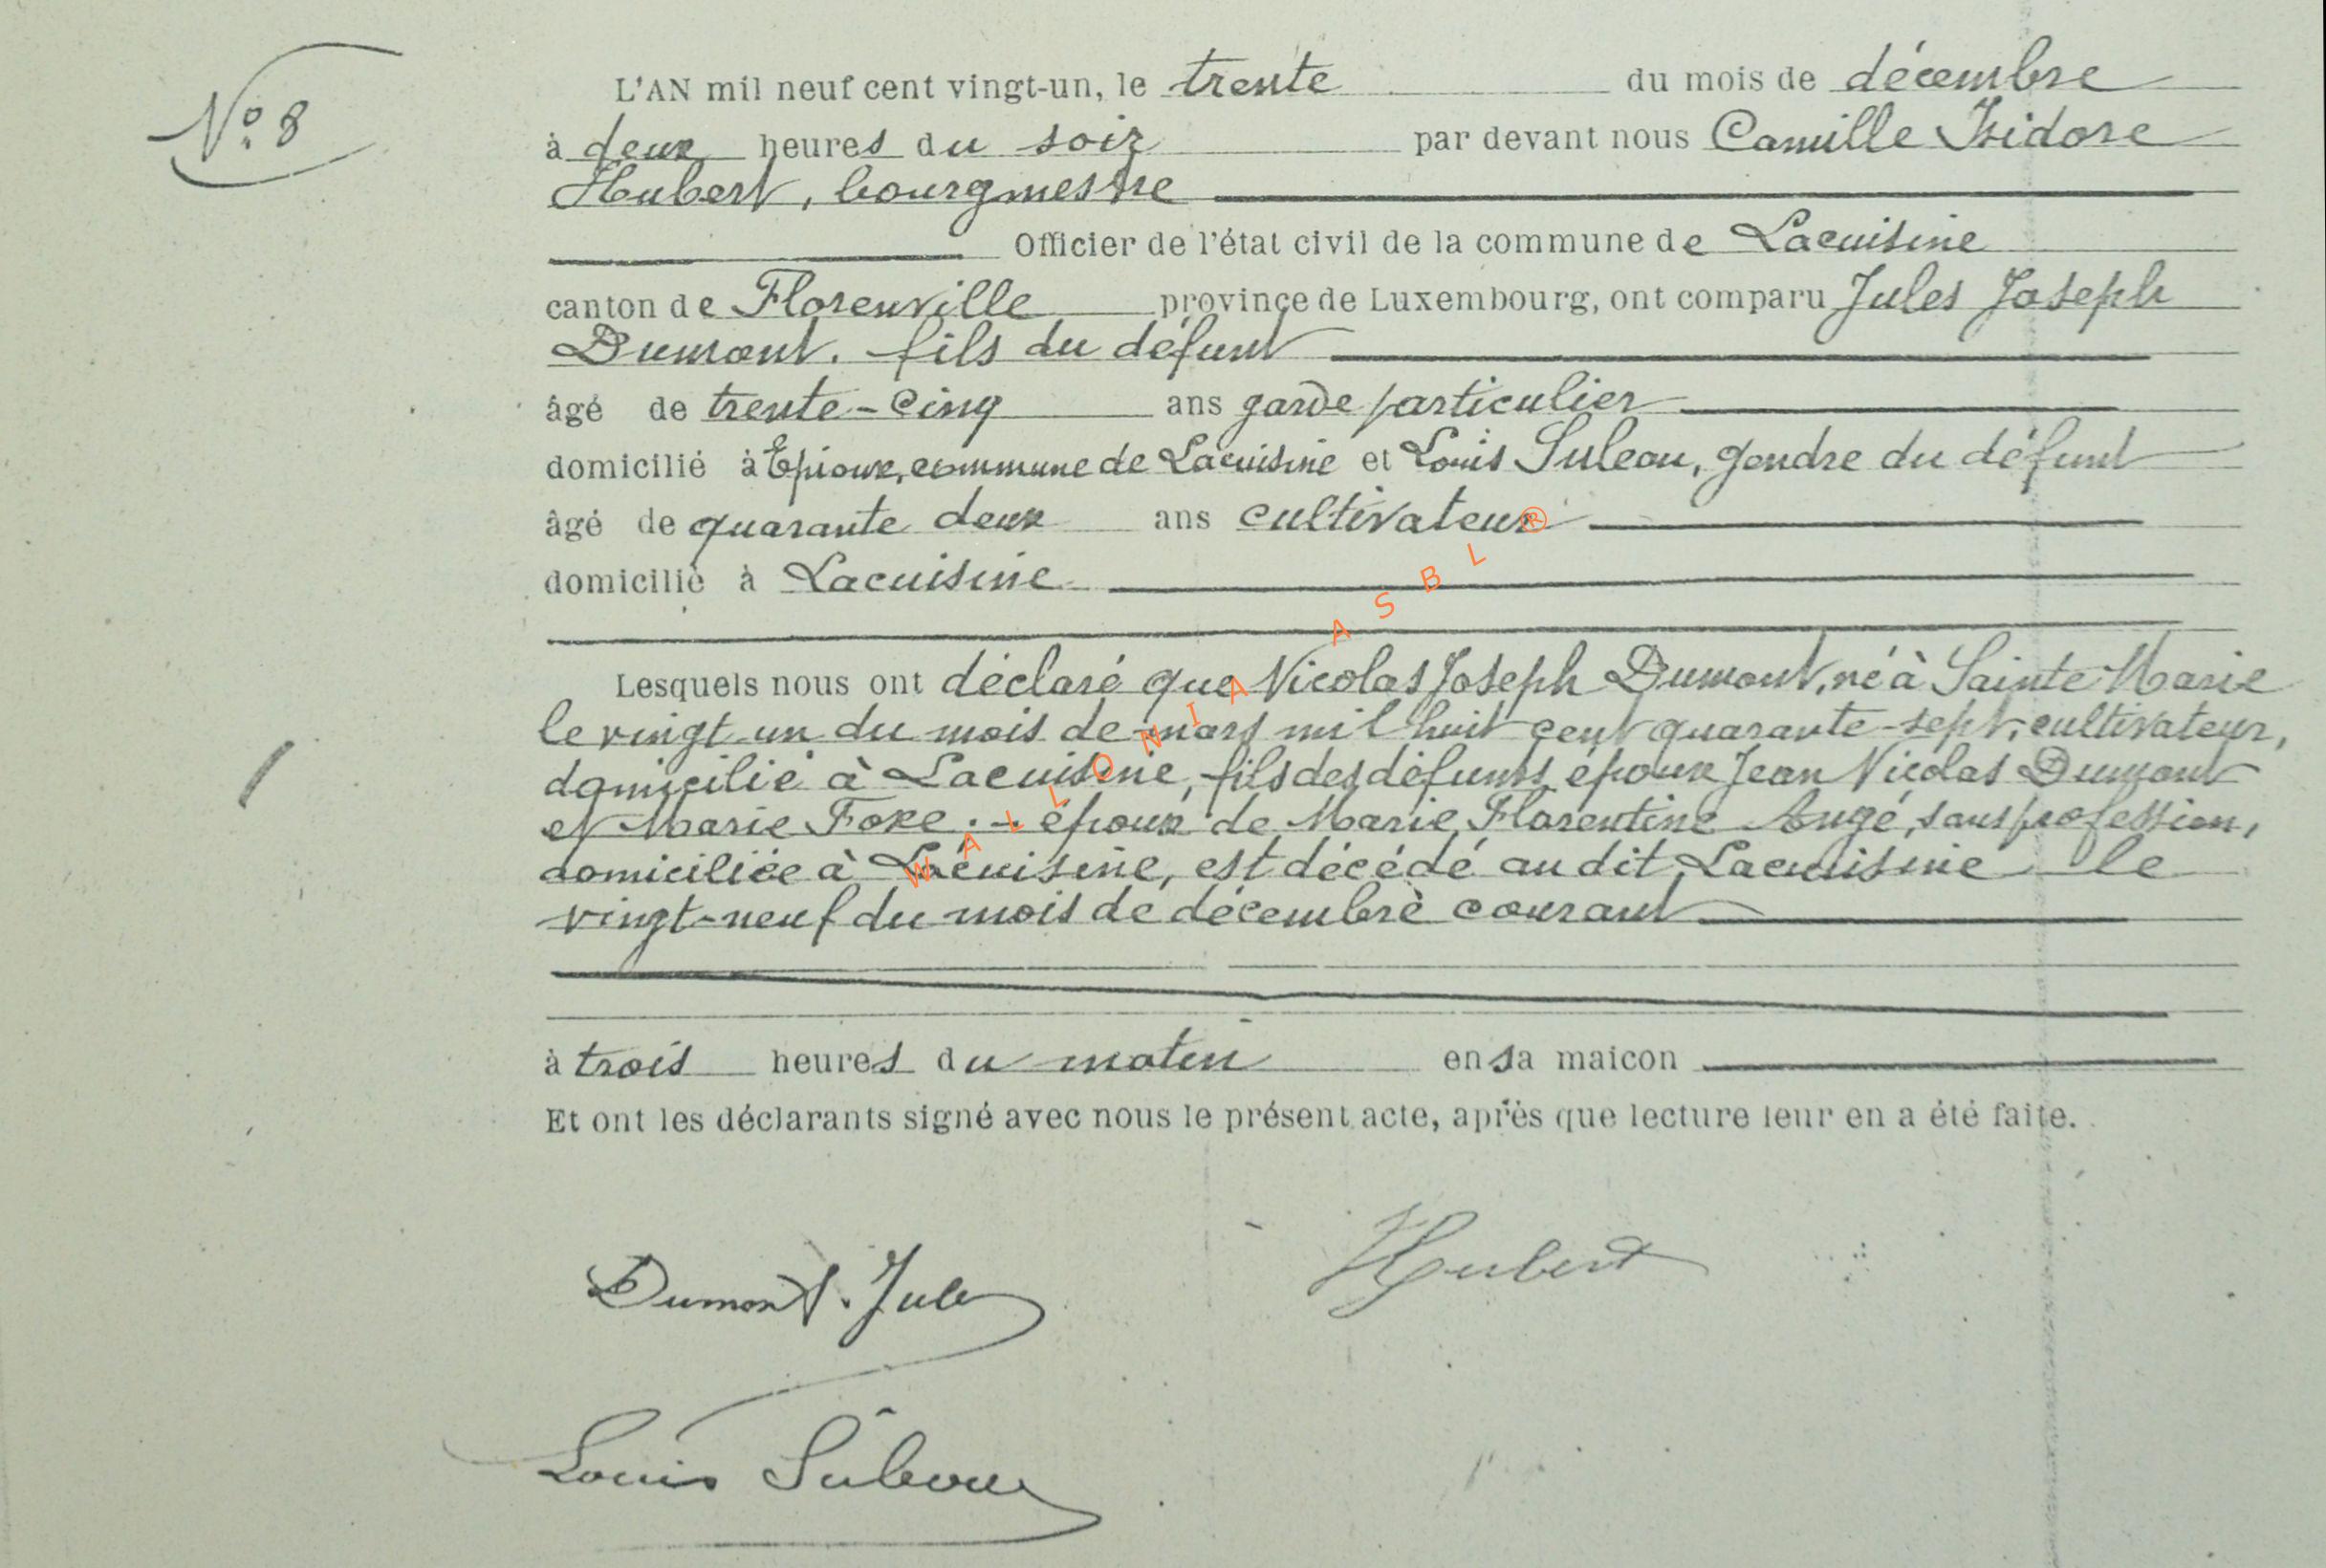 N° 8
L'AN mil neuf cent vingt-un, le trente du mois de décembre
à deux heures du soir par devant nous Camille Isidore
Hubert, bourgmestre
Officier de l'état civil de la commune de Lacuisine
canton de Florenville province de Luxembourg, ont comparu Jules Joseph
Dumont. fils du défunt
âgé de trente-cinq ans garde particulier
domicilié à Epioux, commune de Lacuisine et Louis Suleau, gendre du défunt
âgé de quarante deux ans cultivateur
domicilié à Lacuisine
Lesquels nous ont déclaré que Nicolas Joseph Dumont, né à Sainte Marie
le vingt un du mois de mars mil huit cent quarante-sept, cultivateur,
domicilié à Lacuisine, fils des défunts époux Jean Nicolas Dumont
et Marie Foxe. - époux de Marie Florentine Augé, sans profession,
domiciliée à Lacuisine, est décédé au dit Lacuisine le
vingt-neuf du mois de décembre courant
à trois heures du matin en sa maicon
Et ont les déclarants signé avec nous le présent acte, après que lecture leur en a été faite.
Dumont. Jules
Hubert
Louis Suleau
WALLONIA ASBL ®